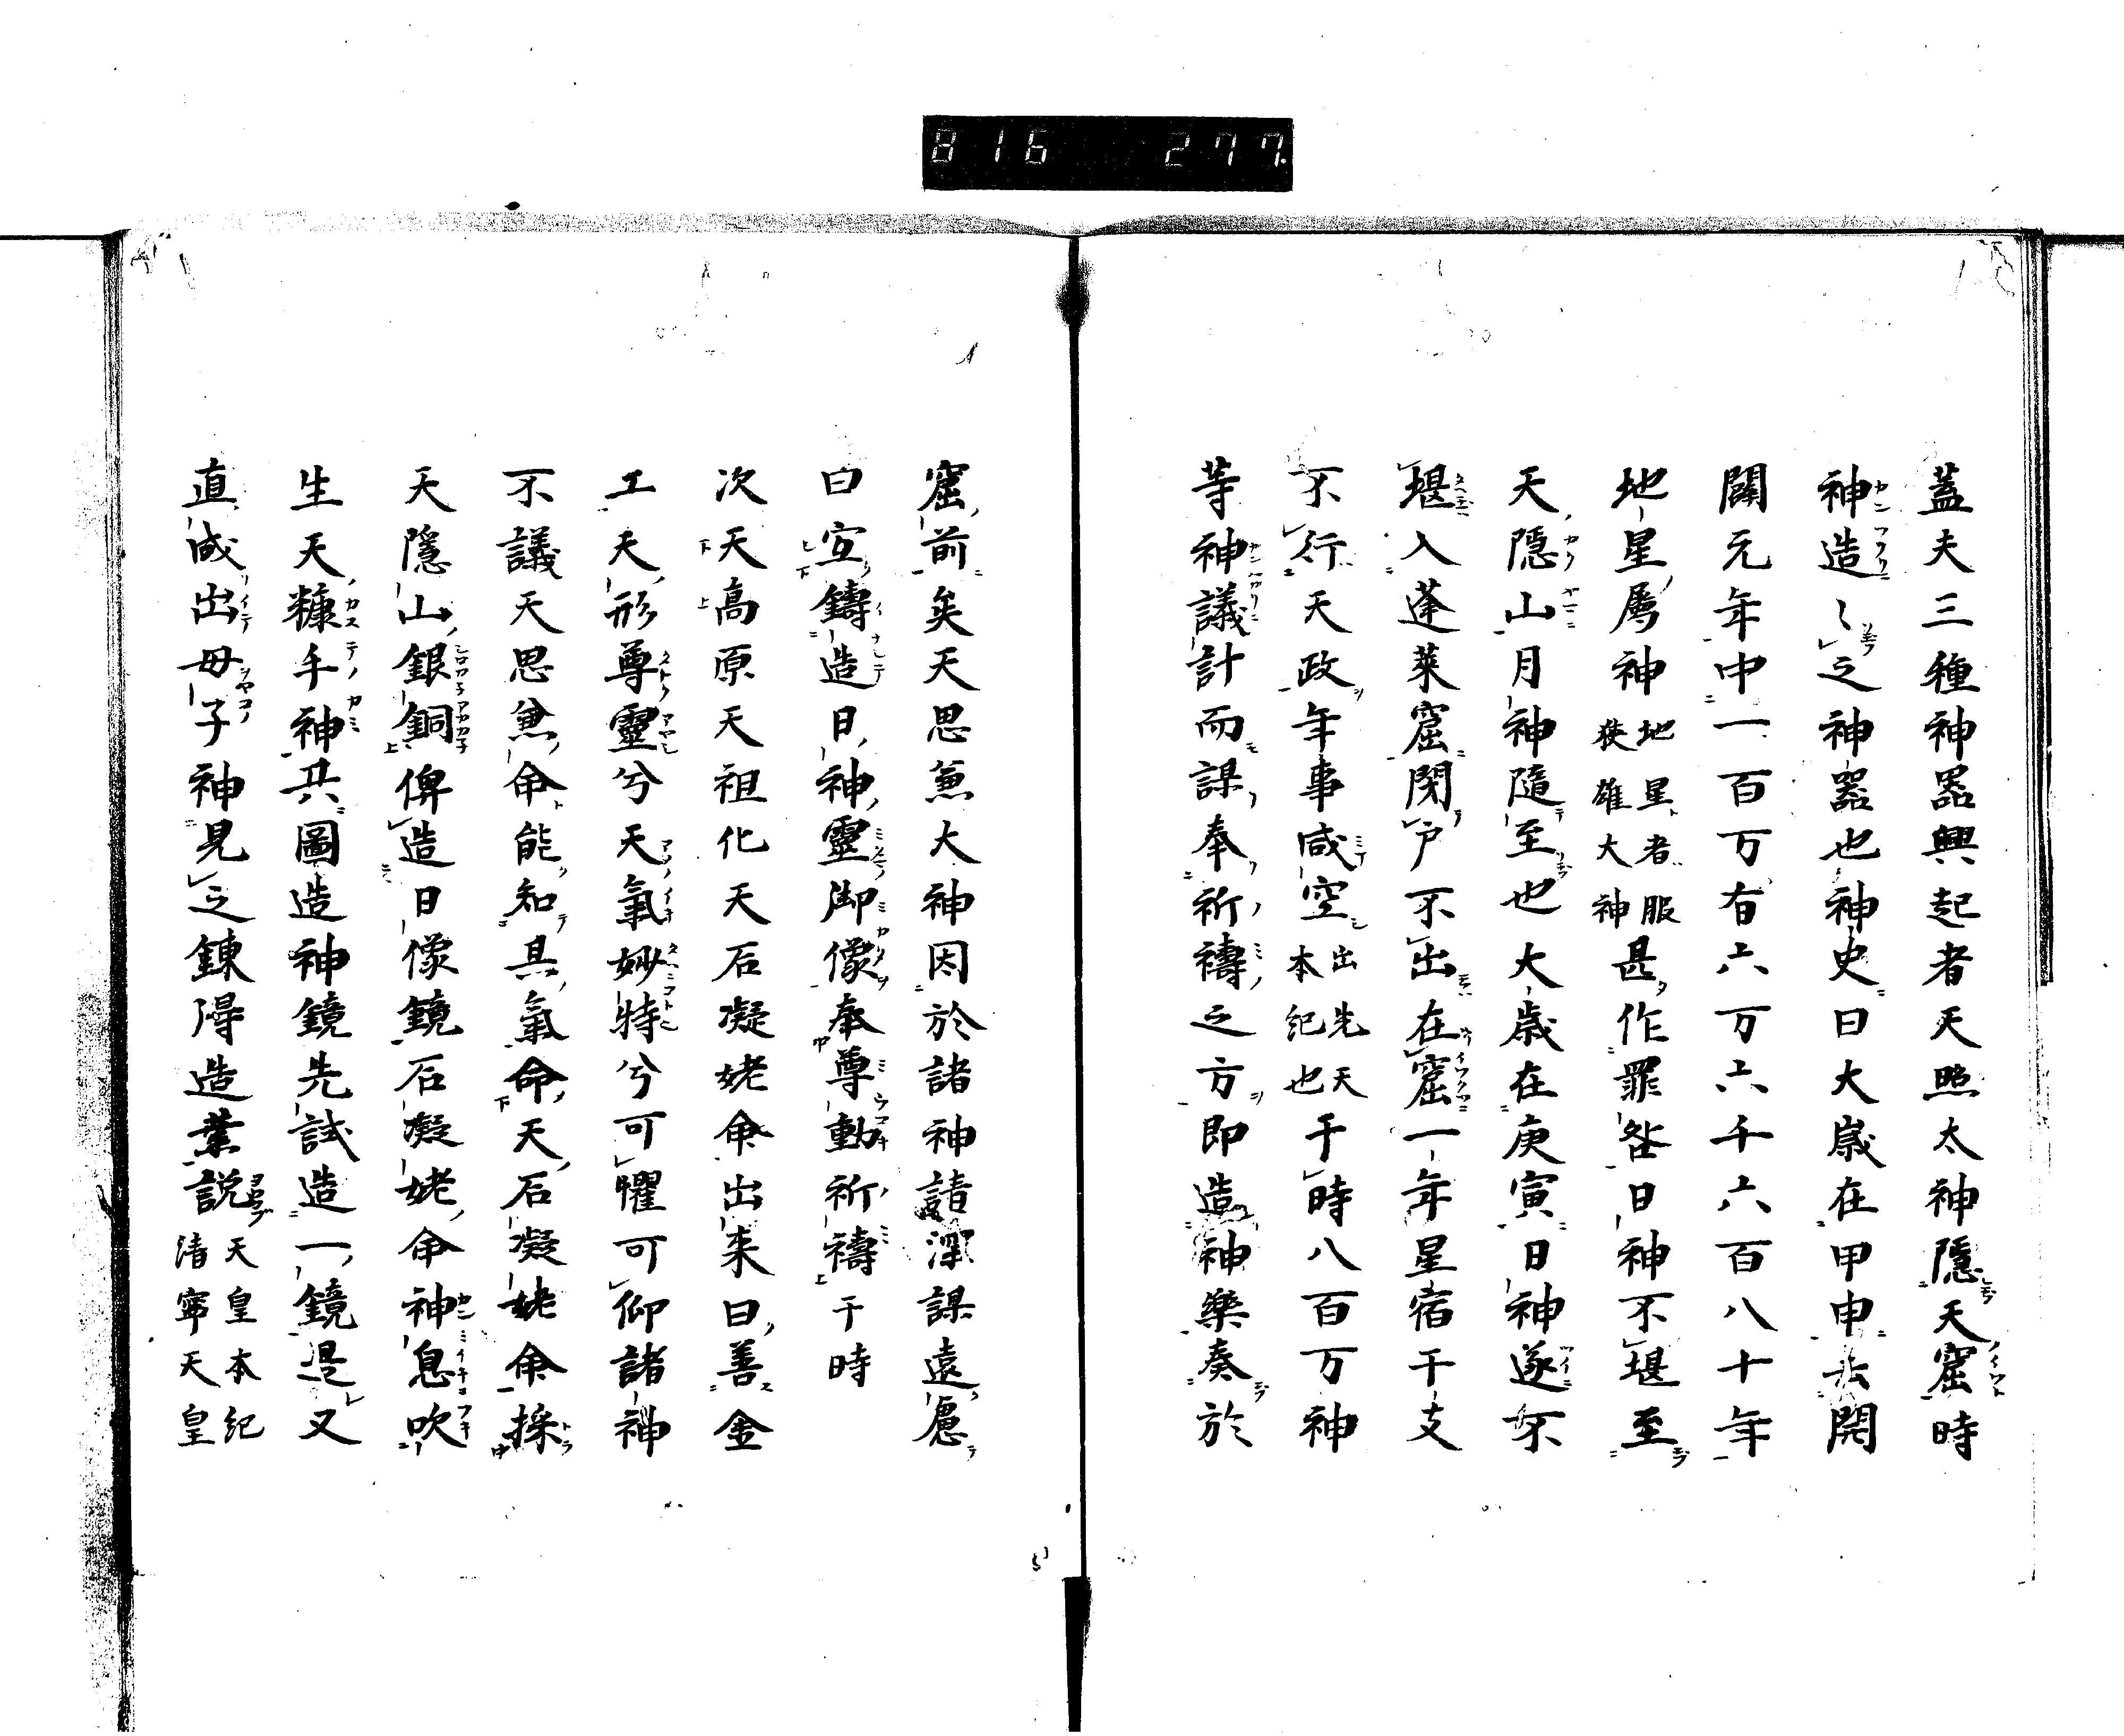 816 277
蓋夫三種神器興起者天照太神隱天窟時
神造〻之神器也神史曰大歳在甲申去開
闢元年中一百万有六万六千六百八十年
地星属神地星者服狭雄大神甚作罪咎日神不堪至
天隱山月神隨至也大歳在庚寅日神遂不
堪入蓬萊窟閇戸不出在窟一年星宿干支
不行天政年事咸空出先天本紀也于時八百万神
等神議計而謀奉祈禱之方即造神樂奏於
窟前矣天思兼大神因於諸神請深謀遠慮
曰宜鑄造日神靈御像奉尊動祈禱于時
次天高原天祖化天石凝姥命出来曰善金
工天形尊靈兮天氣妙特兮可懼可仰諸神
不議天思兼命能知具氣命天石凝姥命採
天隱山銀銅俾造日像鏡石凝姥命神息吹
生天糠手神共圖造神鏡先試造一鏡是又
直成出母子神見之錬得造業説天皇本紀清寧天皇